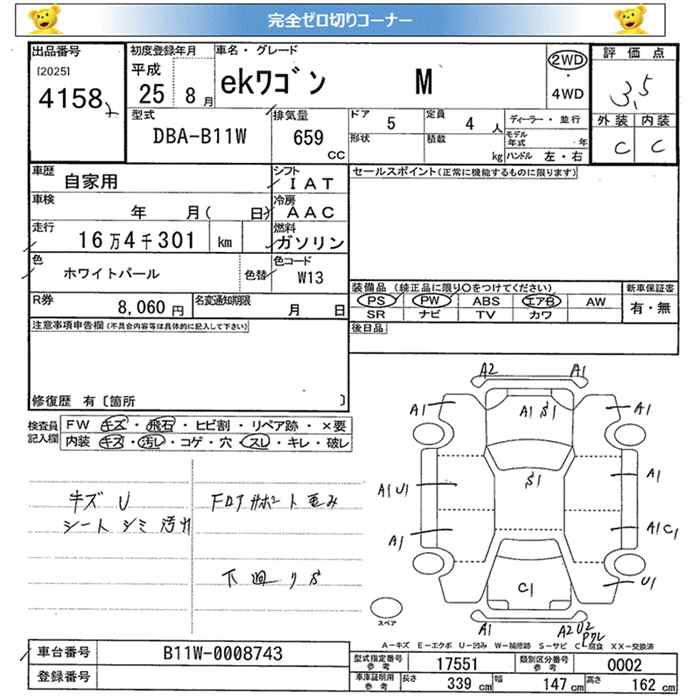 完全ゼロ切りコーナー
出品番号 初度登録年月 車名・グレード 評価点
[2025] 平成 2WD
4158 25 8月 ekワゴン M ・ 3.5
4WD
型式 排気量 ドア 5 定員 4人 ディーラー・並行 外装 内装
DBA-B11W 659 CC 形状 積載 kg モデル年式 年 C C
ハンドル 左・右
車歴 自家用 シフト IAT セールスポイント(正常に機能するものに限ります)
車検 年 月( 日) 冷房 AAC
走行 16万4千301 km 燃料 ガソリン
色 ホワイトパール 色替 色コード W13
装備品 (純正品に限り○をつけてください) 新車保証書
PS PW ABS エアB AW 有・無
SR ナビ TV カワ
R券 8,060円 名変通知期限 月 日
後日品
注意事項申告欄 (不具合内容等は具体的に記入して下さい)
修復歴 有 [箇所 ]
検査員記入欄 FW キズ・飛石・ヒビ割・リペア跡・×要
内装 キズ・汚レ・コゲ・穴・スレ・キレ・破レ
キズ U
シート シミ 汚れ
下廻りS
A2 A1
A1 A1 S1 A1
S1 A1
A1 U1
A1 A1 C1
C1 U1
A1 A2 U2
スペア
A-キズ E-エクボ U-凹み W-補修跡 S-サビ C-腐食 XX-交換済
車台番号 B11W-0008743
登録番号
型式指定番号 参考 17551 類別区分番号 参考 0002
車庫証明用 参考 長さ 339 cm 幅 147 cm 高さ 162 cm